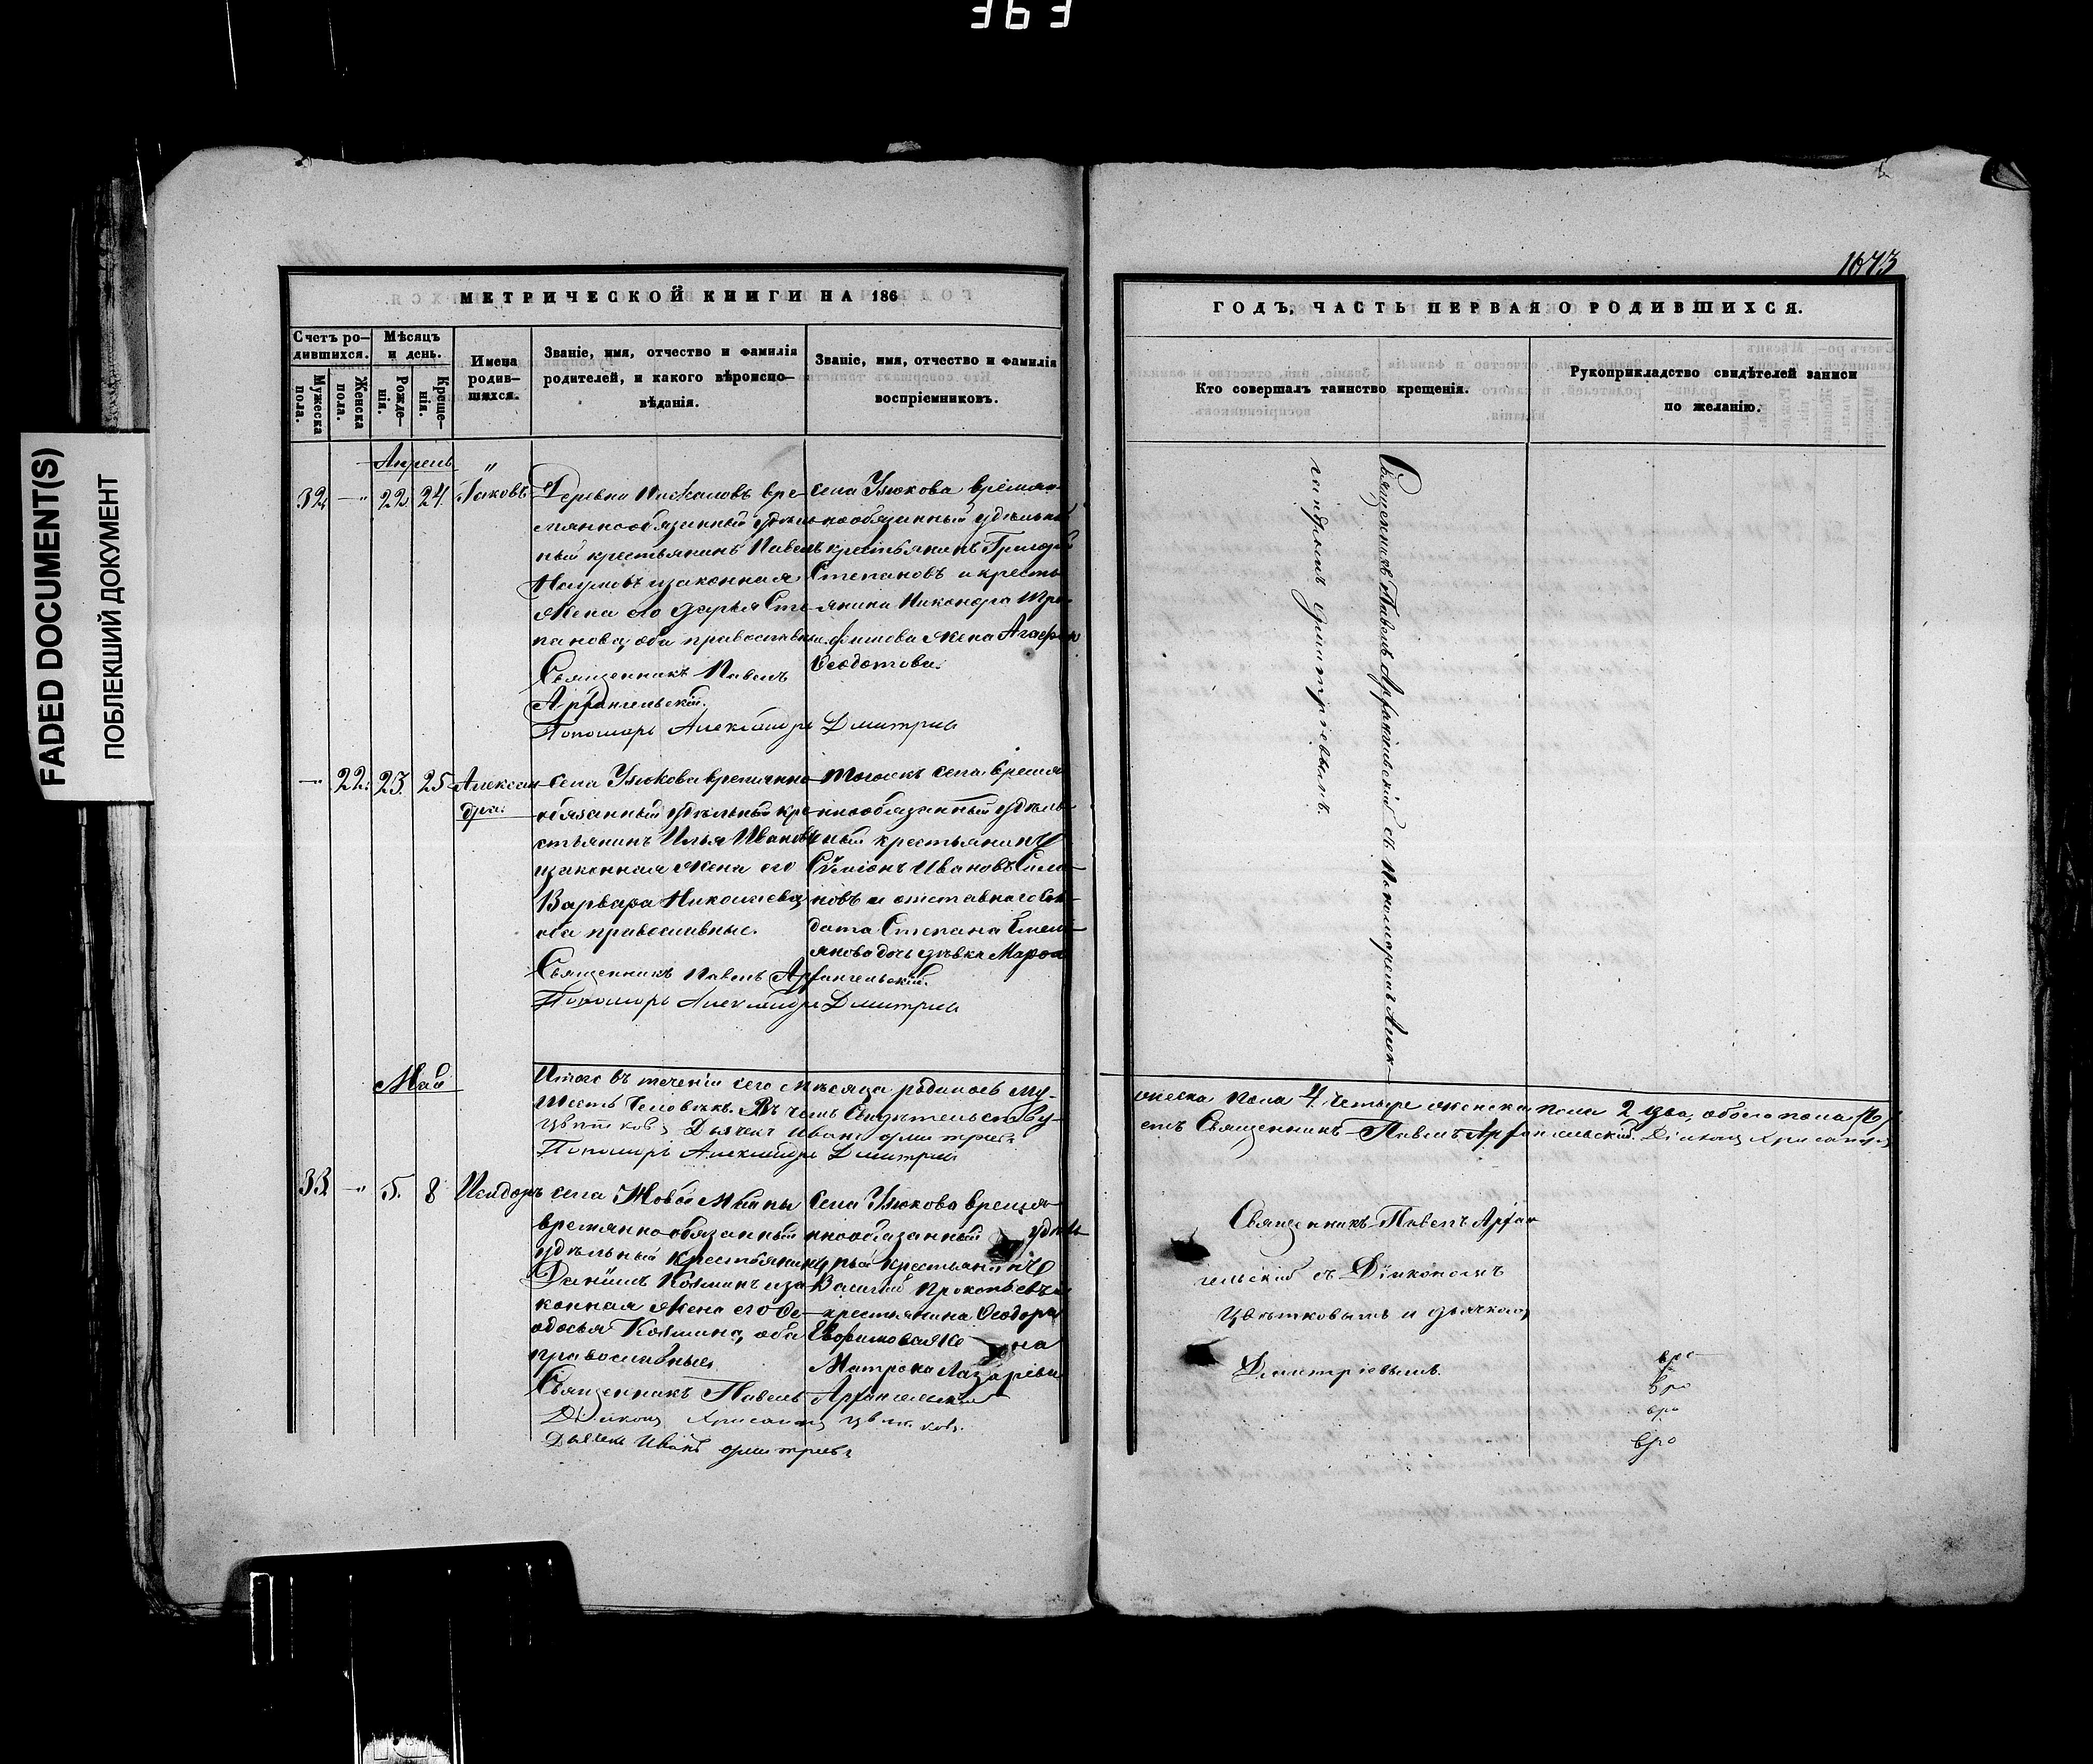 363
FADED DOCUMENT(S)
ПОБЛЕКШИЙ ДОКУМЕНТ
1673
МЕТРИЧЕСКОЙ КНИГИ НА 186
Счетъ ро-
дившихся.
Мужеска пола.
Женска пола.
Мѣсяцъ
и день.
Рожде-
нія.
Креще-
нія.
Имена
родив-
шихся.
Званіе, имя, отчество и фамилія
родителей, и какого вѣроиспо-
вѣданія.
Званіе, имя, отчество и фамилія
воспріемниковъ.
Апрель
32 — 22. 24. Іаковъ
Деревни вре-
мяннообязанный удѣль-
ный крестьянинъ Павелъ
Наумовъ изаконная
жена его Дарья Сте-
панова, оба православные.
Священникъ Павелъ
Архангельскій.
Пономарь Александръ Дмитріев
Села Узюкова времян-
нообязанный удѣльный
крестьянинъ Григорій
Степановъ и кресть
янина Никонора Тро-
фимова жена Агафья
Ѳеодотова.
— 22. 23. 25 Алексан-
дра.
Села Узюкова временно-
обязанный удѣльный кре-
стьянинъ Илья Ивановъ
изаконная жена его
Варвара Николаева,
оба православные.
Священникъ Павелъ Архангельскій.
Пономарь Александръ Дмитріев
Тогожъ села времен
нообязанный удѣль-
ный крестьянинъ
Сѵмеонъ Ивановъ
новъ и отставного сол-
дата Степана Емель-
янова дочь дѣвка
Итого въ теченіи сего мѣсяца родилось му-
шесть человѣкъ. Въ чемъ Свидѣтельству-
Цвѣтковъ, Дьячекъ Иванъ Дмитріевъ
Пономарь Александръ Дмитріев
Май
33. — 5. 8 Исидоръ
Села Новой
времяннообязанный
удѣльный крестьянинъ
Даніилъ Козминъ иза-
конная жена его Ѳе-
одосья Козмина, оба
православные.
Священникъ Павелъ Архангельскій
Діаконъ Хрисанфъ Цвѣтковъ.
Дьячекъ Иванъ Дмитріевъ
Села Узюкова времян-
нообязанный удѣль
ный крестьянинъ
Василій Прокопьевъ и
крестьянина Ѳеодора
жена
Матрона Лазарева
ГОДЪ, ЧАСТЬ ПЕРВАЯ О РОДИВШИХСЯ.
Кто совершалъ таинство крещенія.
Рукоприкладство свидѣтелей записи
по желанію.
Священникъ Павелъ Архангельскій съ Пономаремъ Алек-
сандромъ Димитріевымъ.
жеска пола 4. четыре женска пола 2 два, обоего пола (6)
етъ Священникъ Павелъ Архангельскій. Діаконъ Хрисанфъ
Священникъ Павелъ Архан
гельскій съ Діакономъ
Цвѣтковымъ и дьячкомъ
Димитріевымъ.
вро
вро
вро
вро